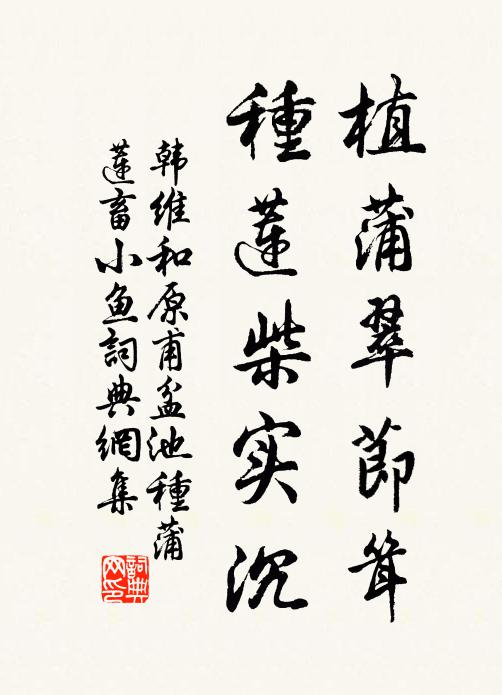 植蒲翠節耸
種蓮柴实沉
韩維和原甫盆池種蒲
蓮畜小魚詞典網集
詞典网印